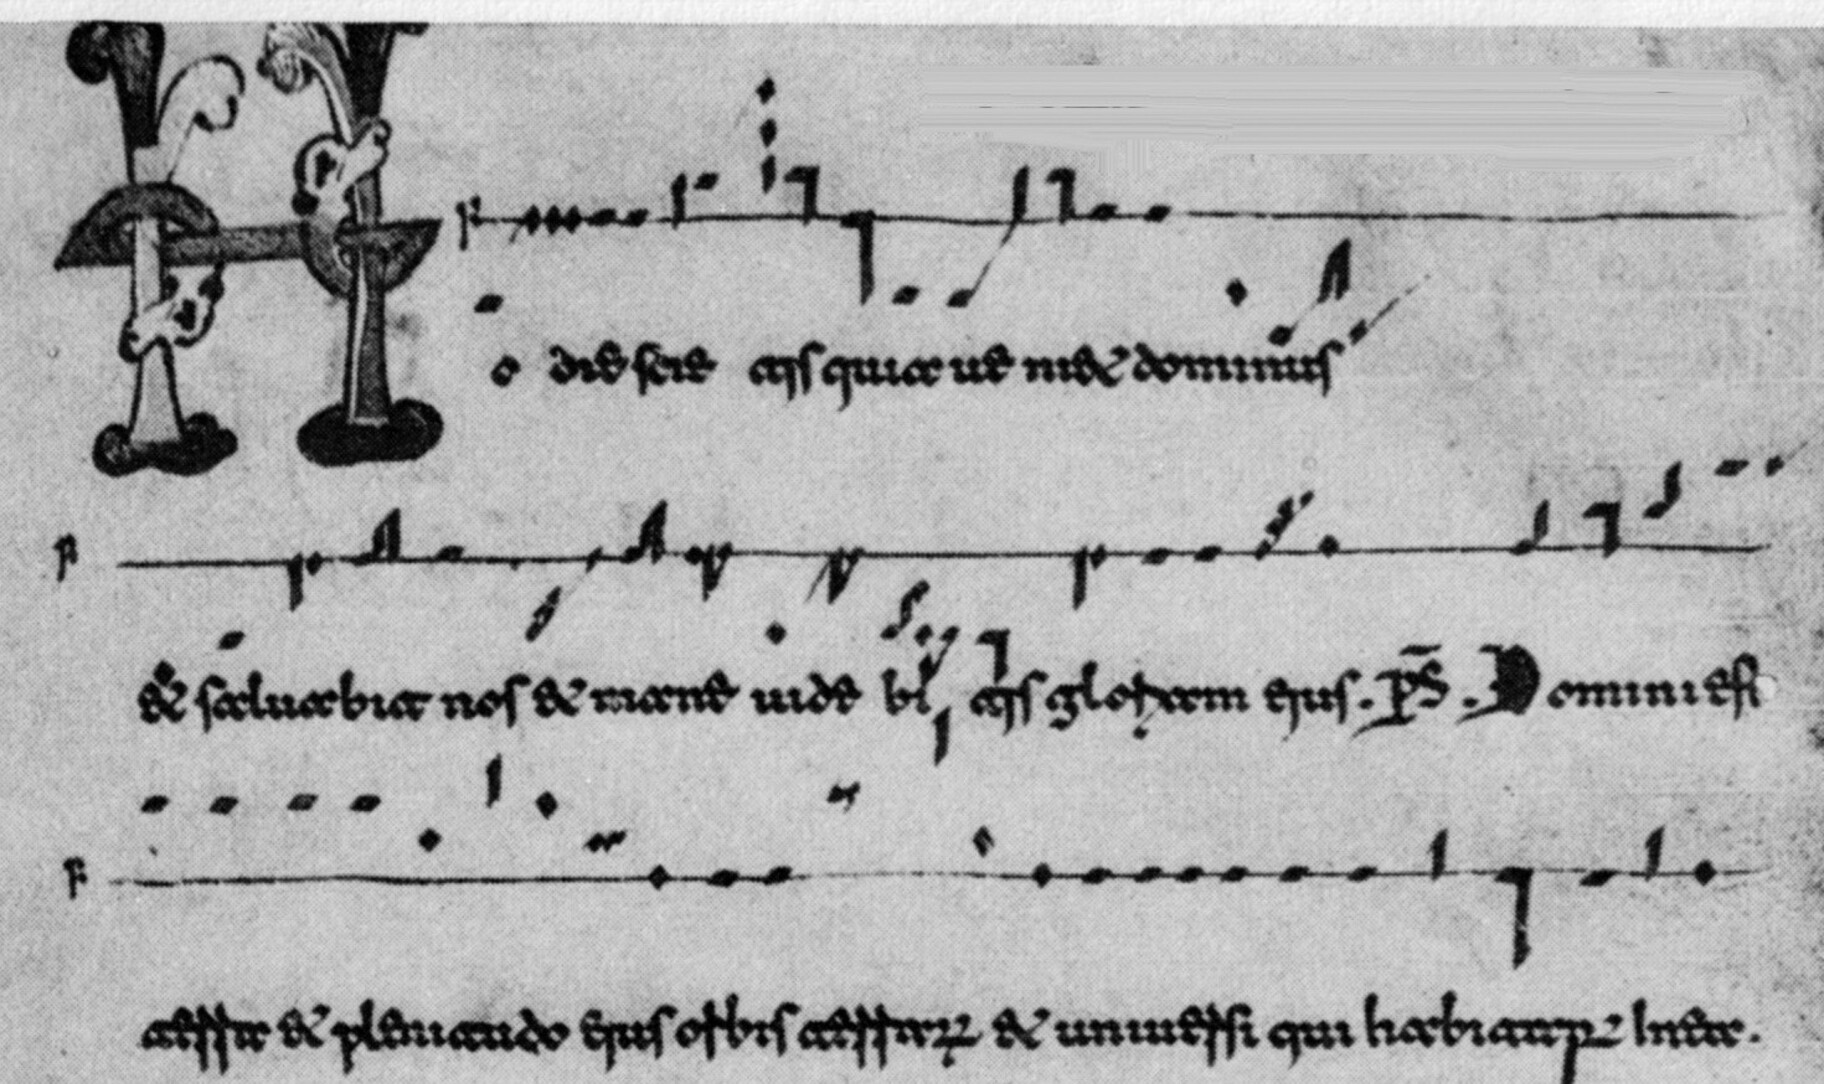 Hodie scietis quia veniet dominus
et salvabit nos et mane videbitis gloriam ejus. Ps. Domini est
terra et plenitudo ejus orbis terrarum et universi qui habitant in ea.